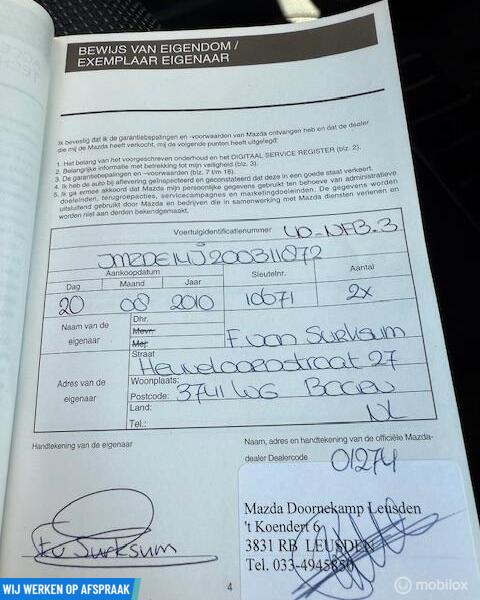 BEWIJS VAN EIGENDOM /
EXEMPLAAR EIGENAAR
Ik bevestig dat ik de garantiebepalingen en -voorwaarden van Mazda ontvangen heb en dat de dealer
die mij de Mazda heeft verkocht, mij de volgende punten heeft uitgelegd:
1. Het belang van het voorgeschreven onderhoud en het DIGITAAL SERVICE REGISTER (blz. 2).
2. Belangrijke informatie met betrekking tot mijn veiligheid (blz. 3).
3. De garantiebepalingen en -voorwaarden (blz. 7 t/m 18).
4. Ik heb de auto bij aflevering geïnspecteerd en geconstateerd dat deze in een goede staat verkeert.
5. Ik ga ermee akkoord dat Mazda mijn persoonlijke gegevens gebruikt ten behoeve van administratieve
doeleinden, terugroepacties, servicecampagnes en marketingdoeleinden. De gegevens worden
uitsluitend gebruikt door Mazda en bedrijven die in samenwerking met Mazda diensten verlenen en
worden niet aan derden bekendgemaakt.
Voertuigidentificatienummer 40-NFB-3
JMZDE14J200311072
Aankoopdatum Sleutelnr. Aantal
Dag Maand Jaar
20 08 2010 10671 2x
Naam van de eigenaar
Dhr.
Mevr.
Mej.
F. van Surksum
Adres van de eigenaar
Straat
Heuveloordstraat 27
Woonplaats:
Postcode: 3741 WG
Land: NL
Tel.:
Handtekening van de eigenaar
Naam, adres en handtekening van de officiële Mazda-
dealer Dealercode 01274
Fv Surksum
Mazda Doornekamp Leusden
't Koendert 6
3831 RB LEUSDEN
Tel. 033-4945850
4
WIJ WERKEN OP AFSPRAAK
mobilox